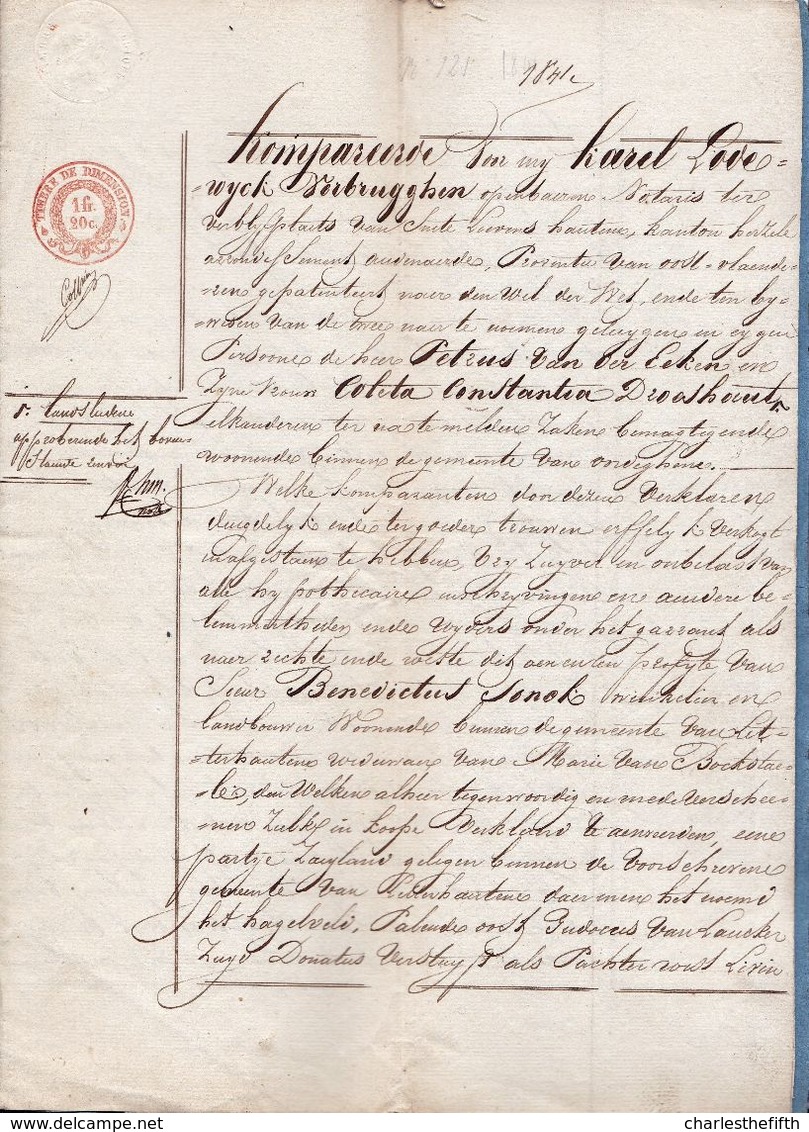 1841
Kompareerde Voor my Karel Lode=
=wyck Verbrugghen openbaeren Notaris ter
verblyfplaets van Sinte Lievens hautem, kanton herzele
arrondissement audenaerde, Provintie van oost=vlaende=
=ren gepatenteert naer den Wel der Wet, ende ten by=
=wesen van de twee naer te noemen getuygen en eygen
Persoone de heer Petrus Van der Eeken en
Zyne Vrouw Coleta Constantia Droeshaut
elkanderen ter na te melden Zaken bemagtigende
woonende binnen de gemeente van oordeghem.
Welke komparanten door dezen Verklaren,
deugdelyk ende ter goeder trouwen erffelyk Verkogt
en afgestaen te hebben, Vry Zuyver en onbelast van
alle hypothecaire inschryvingen en andere be=
lemmertheden ende wyders onder het garrant als
naer rechte ende wette dit aen en ten profyte van
Sieur Benedictus Sonck winkelier en
landbouwer Woonende binnen de gemeente van Let=
=terhautem weduwaer van Marie Van Bockstae=
=le, den Welken alhier tegenwoordig en mede verschee=
=nen Zulks in koope Verklaerd te aenveerden, eene
partye Zayland gelegen binnen de Voorschreven
gemeente Van Letterhautem daer men het noemd
het hagelveld, Palende oost Judocus Van Laucker
Zuyd Donatus Verstuyft als Pachter west Livin
TIMBRE DE DIMENSION
1 fr.
20 c.
landsliedene
approberende het boven=
staende renvoi
charlesthefifth